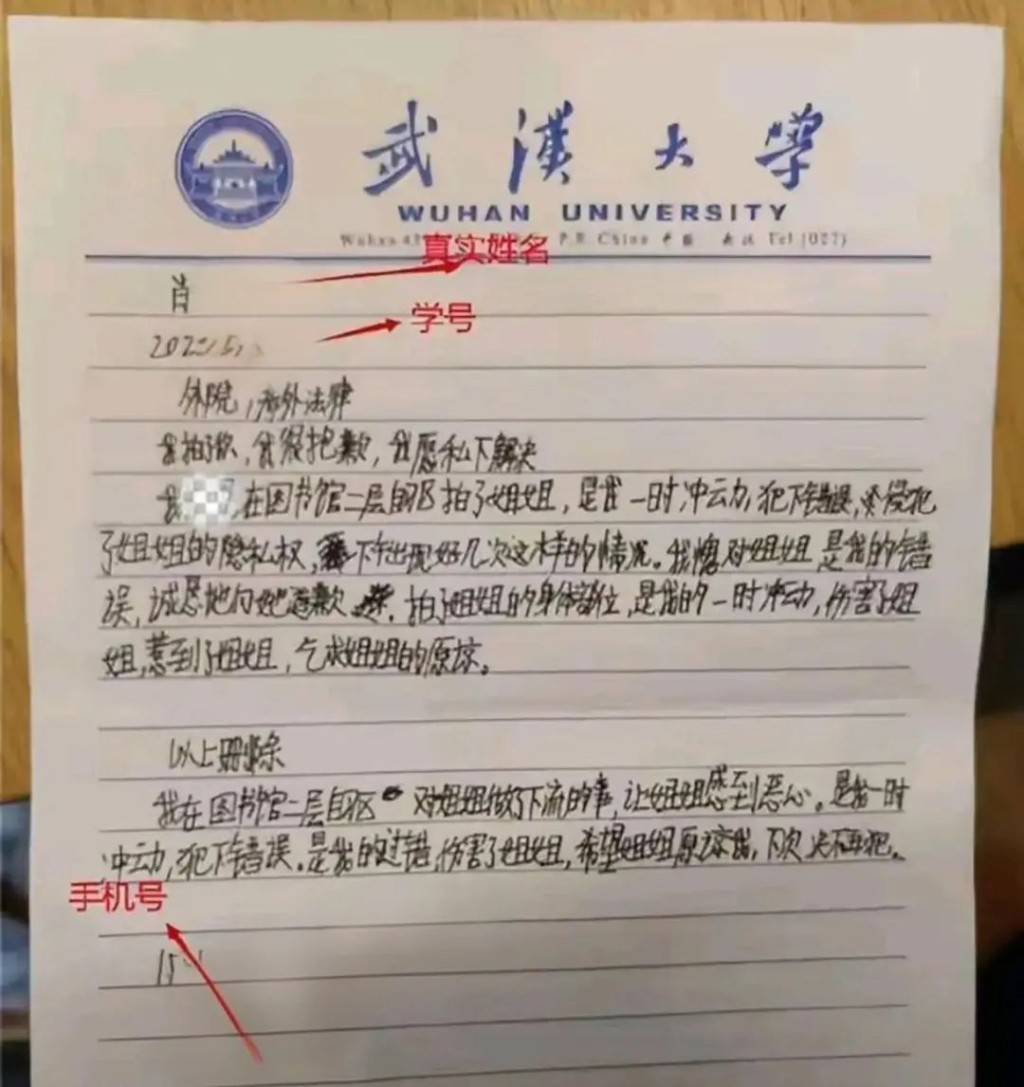 武漢大學
WUHAN UNIVERSITY
P.R. China 中国 武汉 Tel (027)
真实姓名
肖
学号
外院,涉外法律
我拍了你,我很抱歉,我愿私下解决
我 在图书馆二层自习区拍了姐姐,是我一时冲动,犯下错误,侵犯
了姐姐的隐私权,下午出现好几次这样的情况。我愧对姐姐,是我的错
误,诚恳地向她道歉。拍了姐姐的身体部位,是我的一时冲动,伤害了姐
姐,惹到了姐姐,乞求姐姐的原谅。
以上删除
我在图书馆二层自习区 对姐姐做了下流的事,让姐姐感到恶心。是我一时
冲动,犯下错误。是我的过错,伤害了姐姐,希望姐姐原谅我,下次决不再犯。
手机号
15